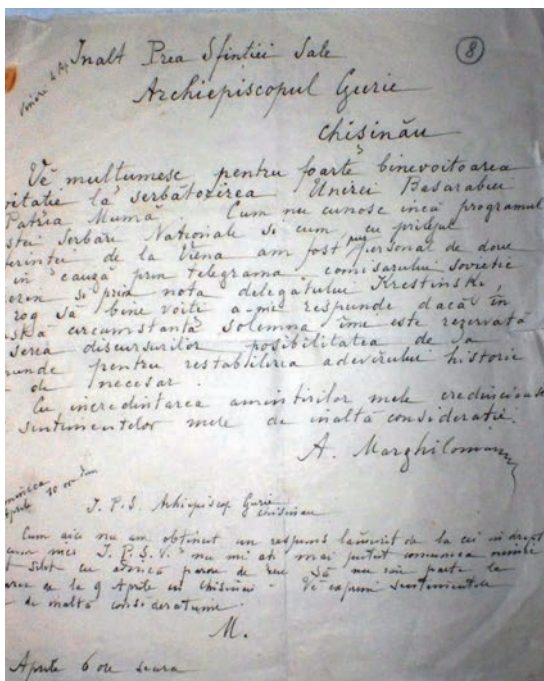 Inalt Prea Sfintiei Sale
8
Archiepiscopul Gurie
Chisinău
Vă multumesc pentru foarte binevoitoarea
vitatie la serbătorirea Unirei Basarabiei
Patria Mumă Cum nu cunosc incă programul
stei Serbări Nationale si cum cu prilejul
erintei de la Viena am fost pus personal de doue
in cauză prin telegrama comisarului sovietic
si prin nota delegatului Krestinski,
rog să bine voiti a-mi respunde dacă in
astă circumstantă solemnă imi este rezervată
seria discursurilor posibilitatea de a
punde pentru restabilirea adevărului historic
de necesar
Cu incredintarea amintirilor mele credincioase
sentimentelor mele de inaltă consideratie.
A. Marghiloman
I. P. S. Arhiepiscop Gurie
Chisinau
Cum aici nu am obtinut un respuns lămurit de la cei in drept
nici I.P.S.V. nu mi ati mai putut comunica
silit cu adincă parere de reu Să nu iau parte la
de la 9 Aprilie in Chisineu Vă exprim sentimentele
de inaltă consideratiune.
M.
Aprilie 6 ore seara